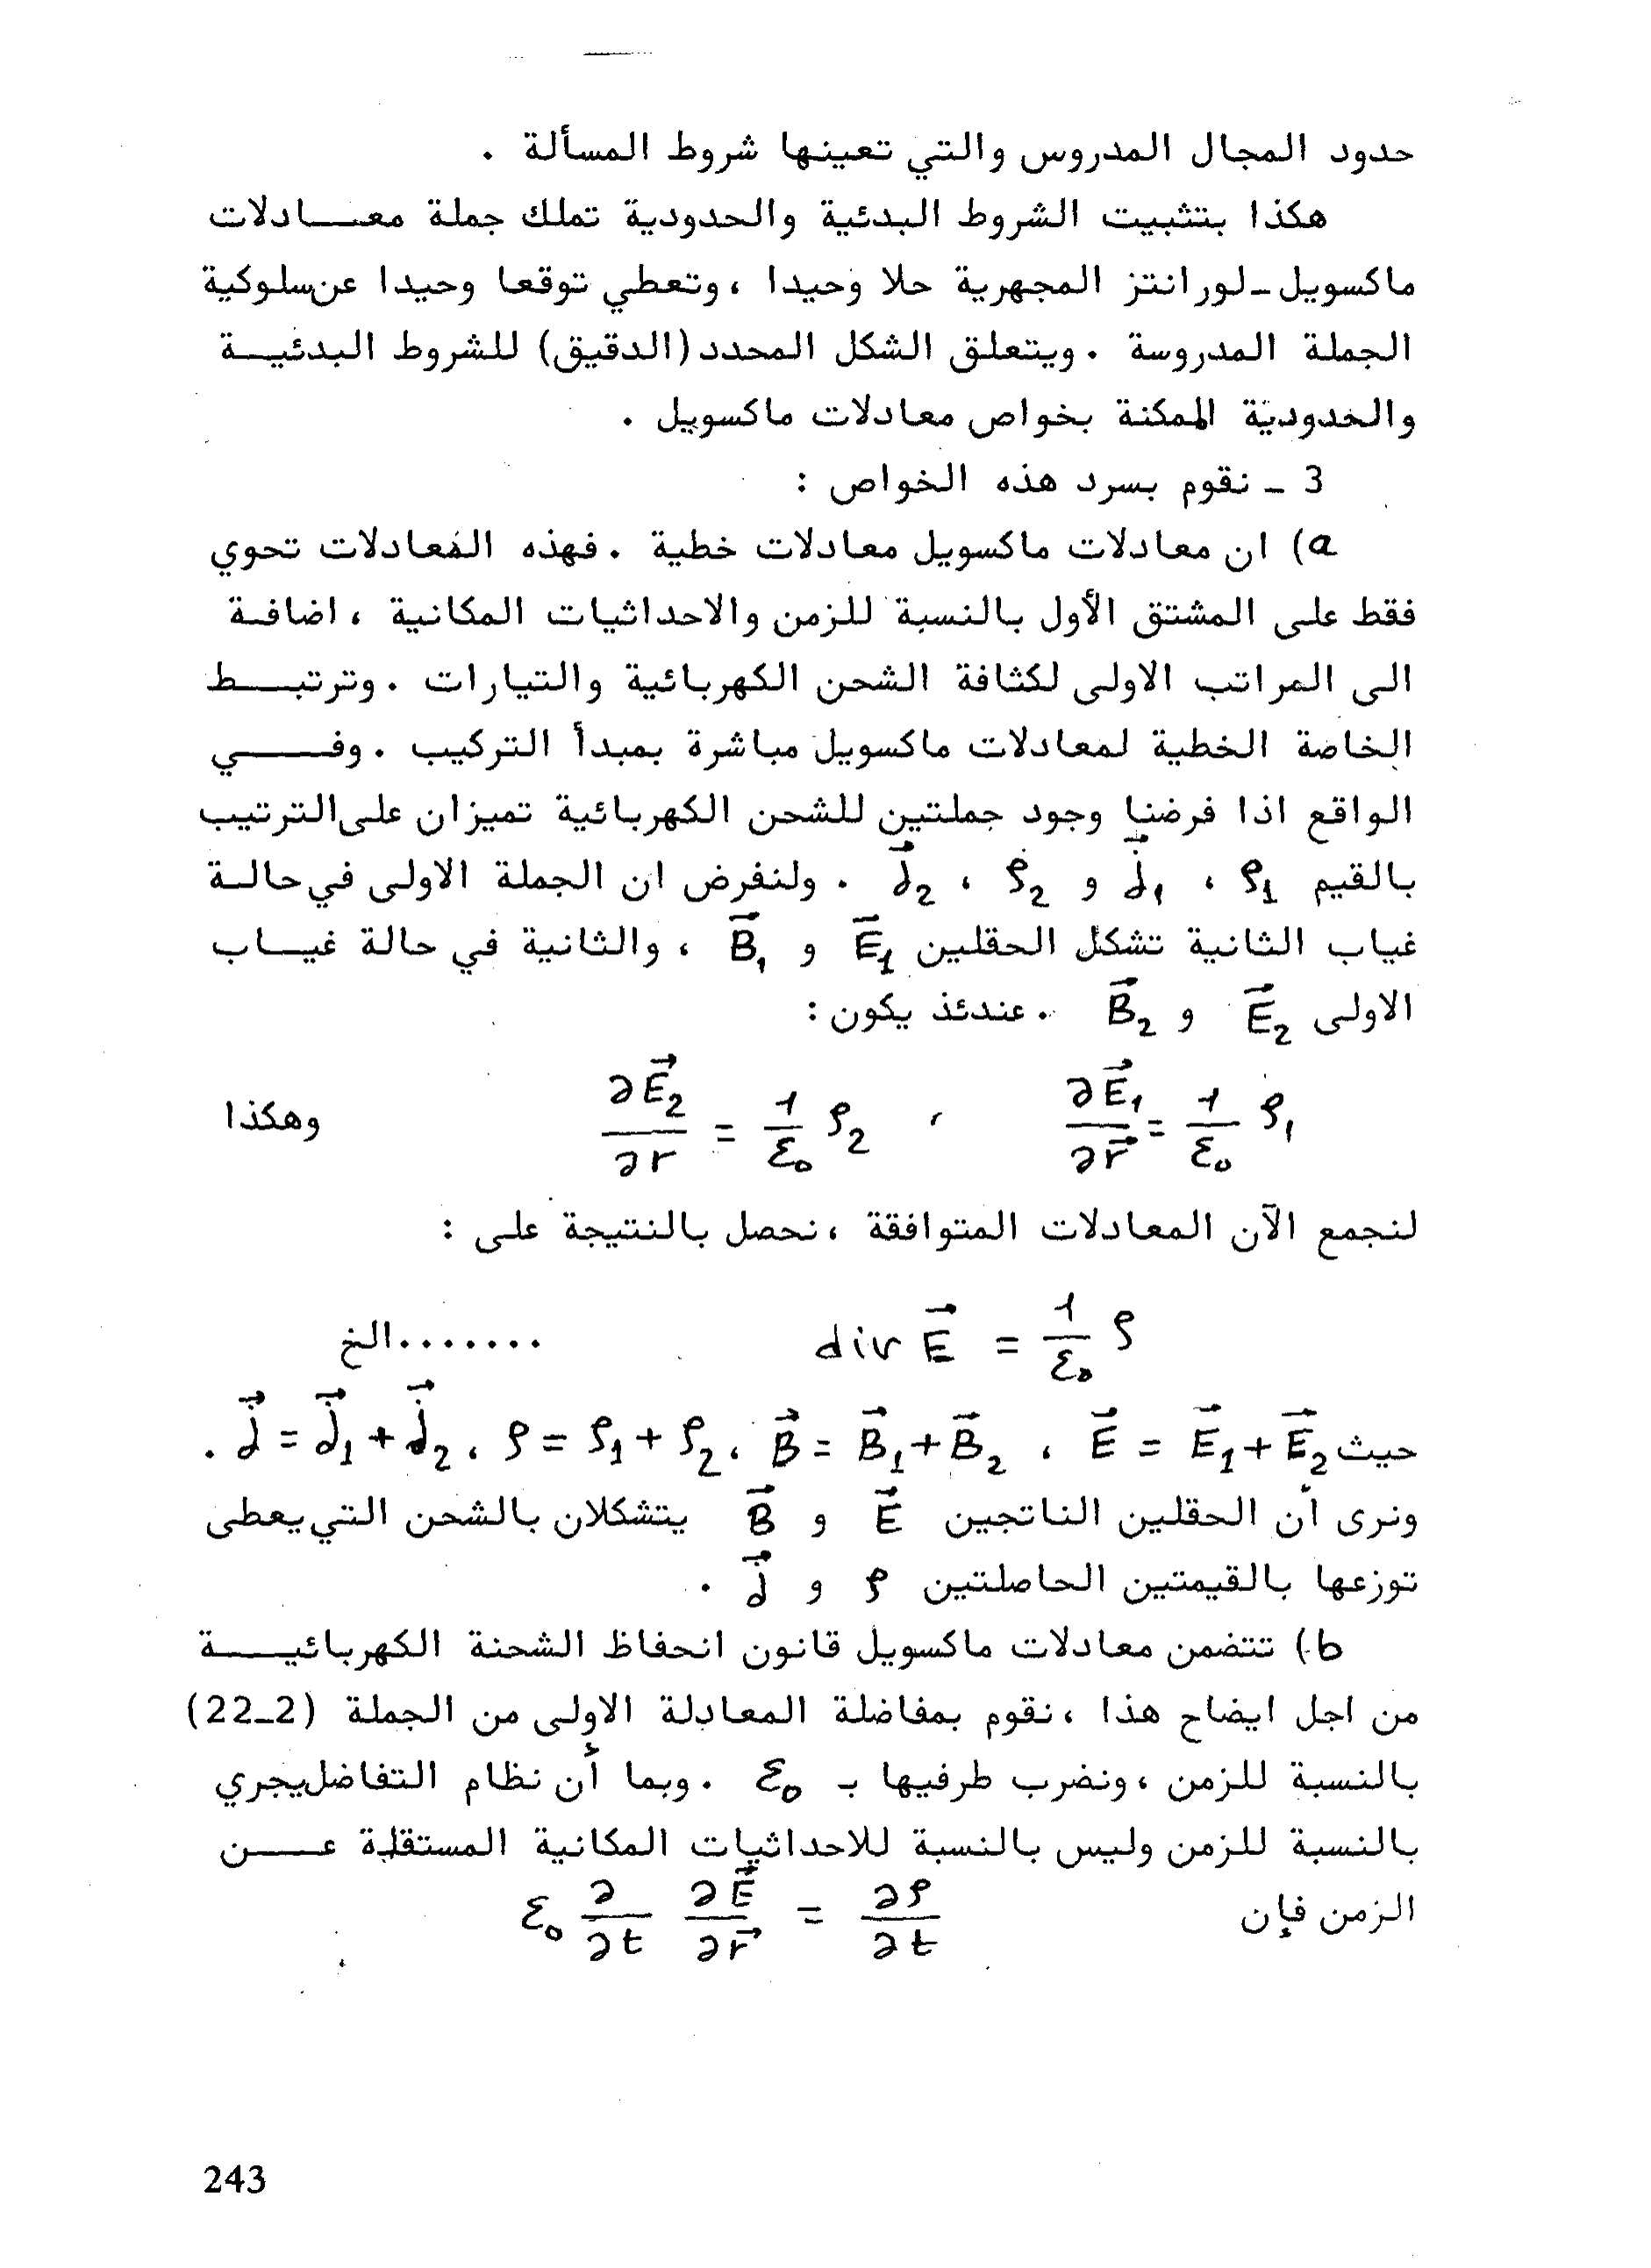 حدود المجال المدروس والتي تعينها شروط المسألة .
هكذا بتثبيت الشروط البدئية والحدودية تملك جملة معـــادلات
ماكسويل ـ لورانتز المجهرية حلا وحيدا ، وتعطي توقعا وحيدا عن سلوكية
الجملة المدروسة . ويتعلق الشكل المحدد (الدقيق) للشروط البدئيـــة
والحدودية الممكنة بخواص معادلات ماكسويل .
3 ـ نقوم بسرد هذه الخواص :
a) ان معادلات ماكسويل معادلات خطية . فهذه المعادلات تحوي
فقط على المشتق الأول بالنسبة للزمن والاحداثيات المكانية ، اضافـة
الى المراتب الاولى لكثافة الشحن الكهربائية والتيارات . وترتبـــط
الخاصة الخطية لمعادلات ماكسويل مباشرة بمبدأ التركيب . وفـــــي
الواقع اذا فرضنا وجود جملتين للشحن الكهربائية تميزان على الترتيب
بالقيم ρ₁ ، j⃗₁ و ρ₂ ، j⃗₂ . ولنفرض ان الجملة الاولى في حالـة
غياب الثانية تشكل الحقلين E⃗₁ و B⃗₁ ، والثانية في حالة غيــاب
الاولى E⃗₂ و B⃗₂ . عندئذ يكون :
∂E⃗₁/∂r⃗ = 1/ε₀ ρ₁ ، ∂E⃗₂/∂r = 1/ε₀ ρ₂ وهكذا
لنجمع الآن المعادلات المتوافقة ، نحصل بالنتيجة على :
div E⃗ = 1/ε₀ ρ .......الخ
حيث E⃗ = E⃗₁+E⃗₂ ، B⃗ = B⃗₁+B⃗₂ ، ρ = ρ₁+ρ₂ ، j⃗ = j⃗₁+j⃗₂ .
ونرى أن الحقلين الناتجين E⃗ و B⃗ يتشكلان بالشحن التي يعطى
توزعها بالقيمتين الحاصلتين ρ و j⃗ .
b) تتضمن معادلات ماكسويل قانون انحفاظ الشحنة الكهربائيـــــة
من اجل ايضاح هذا ، نقوم بمفاضلة المعادلة الاولى من الجملة (2ـ22)
بالنسبة للزمن ، ونضرب طرفيها بـ ε₀ . وبما أن نظام التفاضل يجري
بالنسبة للزمن وليس بالنسبة للاحداثيات المكانية المستقلة عــــن
الزمن فإن ε₀ ∂/∂t ∂E⃗/∂r⃗ = ∂ρ/∂t
243